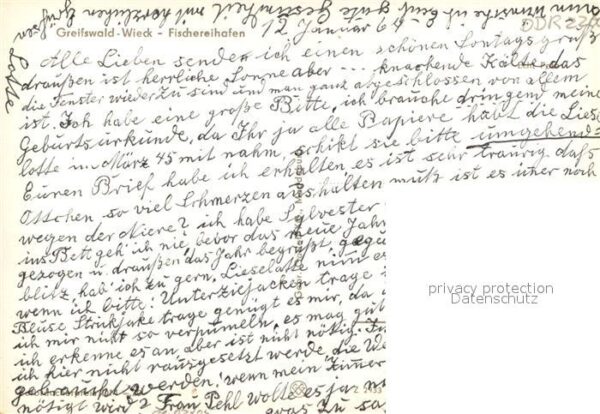 Greifswald-Wieck - Fischereihafen
12 Januar 64
DDR
Alle Lieben sende ich einen schönen Sontagsgruß
draußen ist herrliche Sonne aber ... knackende Kälte das
die Fenster wieder zu sind und man ganz abgeschlossen von allem
ist. Ich habe eine große Bitte, ich brauche dringend meine
Geburtsurkunde, da Ihr ja alle Papiere habt die Liese-
lotte in März 45 mit nahm, schikt sie bitte umgehend.
Euren Brief habe ich erhalten es ist sehr traurig daß
Ottchen so viel Schmerzen aushalten muß ist es imer noch
wegen der Niere? ich habe Sylvester
ins Bett geh' ich nie, bevor das neue Jahr
gezogen u. draußen das Jahr begrüßt,
blitz, hab' ich zu gern. Lieselotte nim es
wenn ich bitte: Unterziejacken trage i
Bluse Strikjake trage genügt es mir, da
ich mir nicht so verpumeln, es mag gut
ich erkenne es an, aber ist nicht nötig.
ich hier nicht rausgesetzt werde die We
gebraucht werden! wenn mein Zimmer
nötigt wird? Frau Pehl wolte es ja
was zu sa
Lotte
privacy protection
Datenschutz